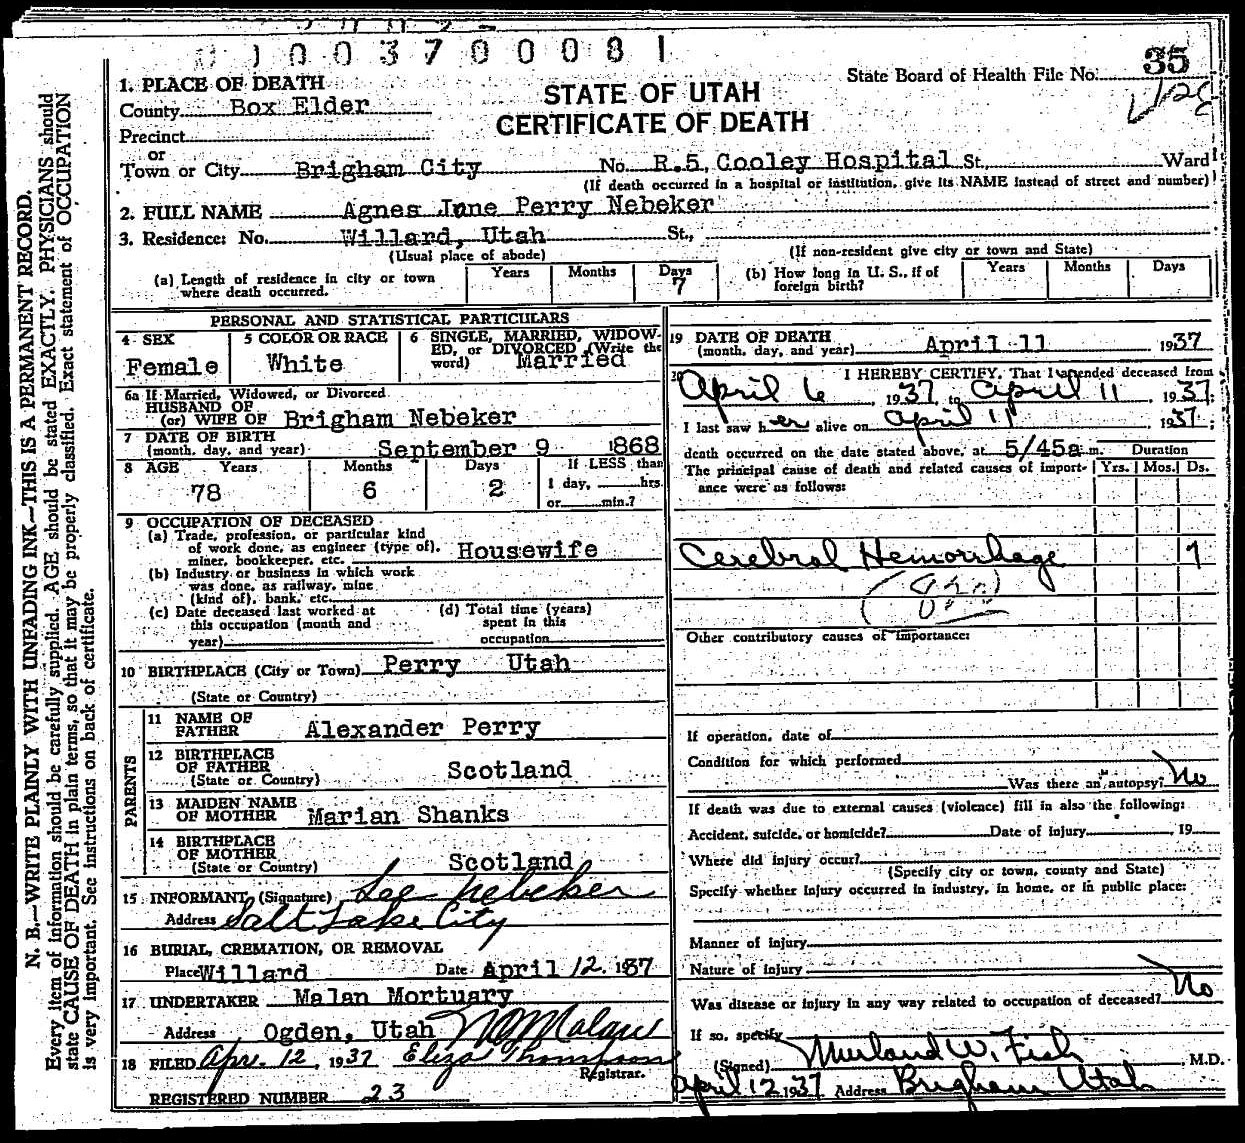 0100370081
State Board of Health File No. 35
1. PLACE OF DEATH
STATE OF UTAH
County Box Elder
CERTIFICATE OF DEATH
Precinct
or
Town or City Brigham City No. R.5, Cooley Hospital St., Ward
(If death occurred in a hospital or institution, give its NAME instead of street and number)
2. FULL NAME Agnes Jane Perry Nebeker
3. Residence: No. Willard, Utah St.,
(Usual place of abode) (If non-resident give city or town and State)
(a) Length of residence in city or town where death occurred. Years Months Days 7
(b) How long in U. S., if of foreign birth? Years Months Days
PERSONAL AND STATISTICAL PARTICULARS
4 SEX Female
5 COLOR OR RACE White
6 SINGLE, MARRIED, WIDOW-
ED, or DIVORCED (Write the
word) Married
6a If Married, Widowed, or Divorced
HUSBAND OF
(or) WIFE OF Brigham Nebeker
7 DATE OF BIRTH
(month, day, and year) September 9 1868
8 AGE Years Months Days If LESS than
78 6 2 1 day, hrs.
or min.?
9 OCCUPATION OF DECEASED
(a) Trade, profession, or particular kind
of work done, as engineer (type of),
miner, bookkeeper, etc. Housewife
(b) Industry or business in which work
was done, as railway, mine
(kind of), bank, etc.
(c) Date deceased last worked at
this occupation (month and
year)
(d) Total time (years)
spent in this
occupation
10 BIRTHPLACE (City or Town) Perry Utah
(State or Country)
PARENTS
11 NAME OF
FATHER Alexander Perry
12 BIRTHPLACE
OF FATHER Scotland
(State or Country)
13 MAIDEN NAME
OF MOTHER Marian Shanks
14 BIRTHPLACE
OF MOTHER
(State or Country) Scotland
15 INFORMANT (Signature) Lee Nebeker
Address Salt Lake City
16 BURIAL, CREMATION, OR REMOVAL
Place Willard Date April 12. 1937
17 UNDERTAKER Malan Mortuary
Address Ogden, Utah
18 FILED Apr. 12, 1937 Eliza Thompson
Registrar.
REGISTERED NUMBER 23
19 DATE OF DEATH
(month, day, and year) April 11 1937
20 I HEREBY CERTIFY, That I attended deceased from
April 6, 1937, to April 11, 1937;
I last saw her alive on April 11 1937;
death occurred on the date stated above, at 5/45a m. Duration
The principal cause of death and related causes of import- Yrs. Mos. Ds.
ance were as follows:
Cerebral Hemorrhage 7
Other contributory causes of importance:
If operation, date of
Condition for which performed
Was there an autopsy? No
If death was due to external causes (violence) fill in also the following:
Accident, suicide, or homicide? Date of injury , 19
Where did injury occur?
(Specify city or town, county and State)
Specify whether injury occurred in industry, in home, or in public place:
Manner of injury
Nature of injury
Was disease or injury in any way related to occupation of deceased? No
If so, specify
(Signed) Merland W. Fish, M.D.
April 12 1937 Address Brigham Utah
N. B.—WRITE PLAINLY WITH UNFADING INK—THIS IS A PERMANENT RECORD.
Every item of information should be carefully supplied. AGE should be stated EXACTLY. PHYSICIANS should
state CAUSE OF DEATH in plain terms, so that it may be properly classified. Exact statement of OCCUPATION
is very important. See instructions on back of certificate.